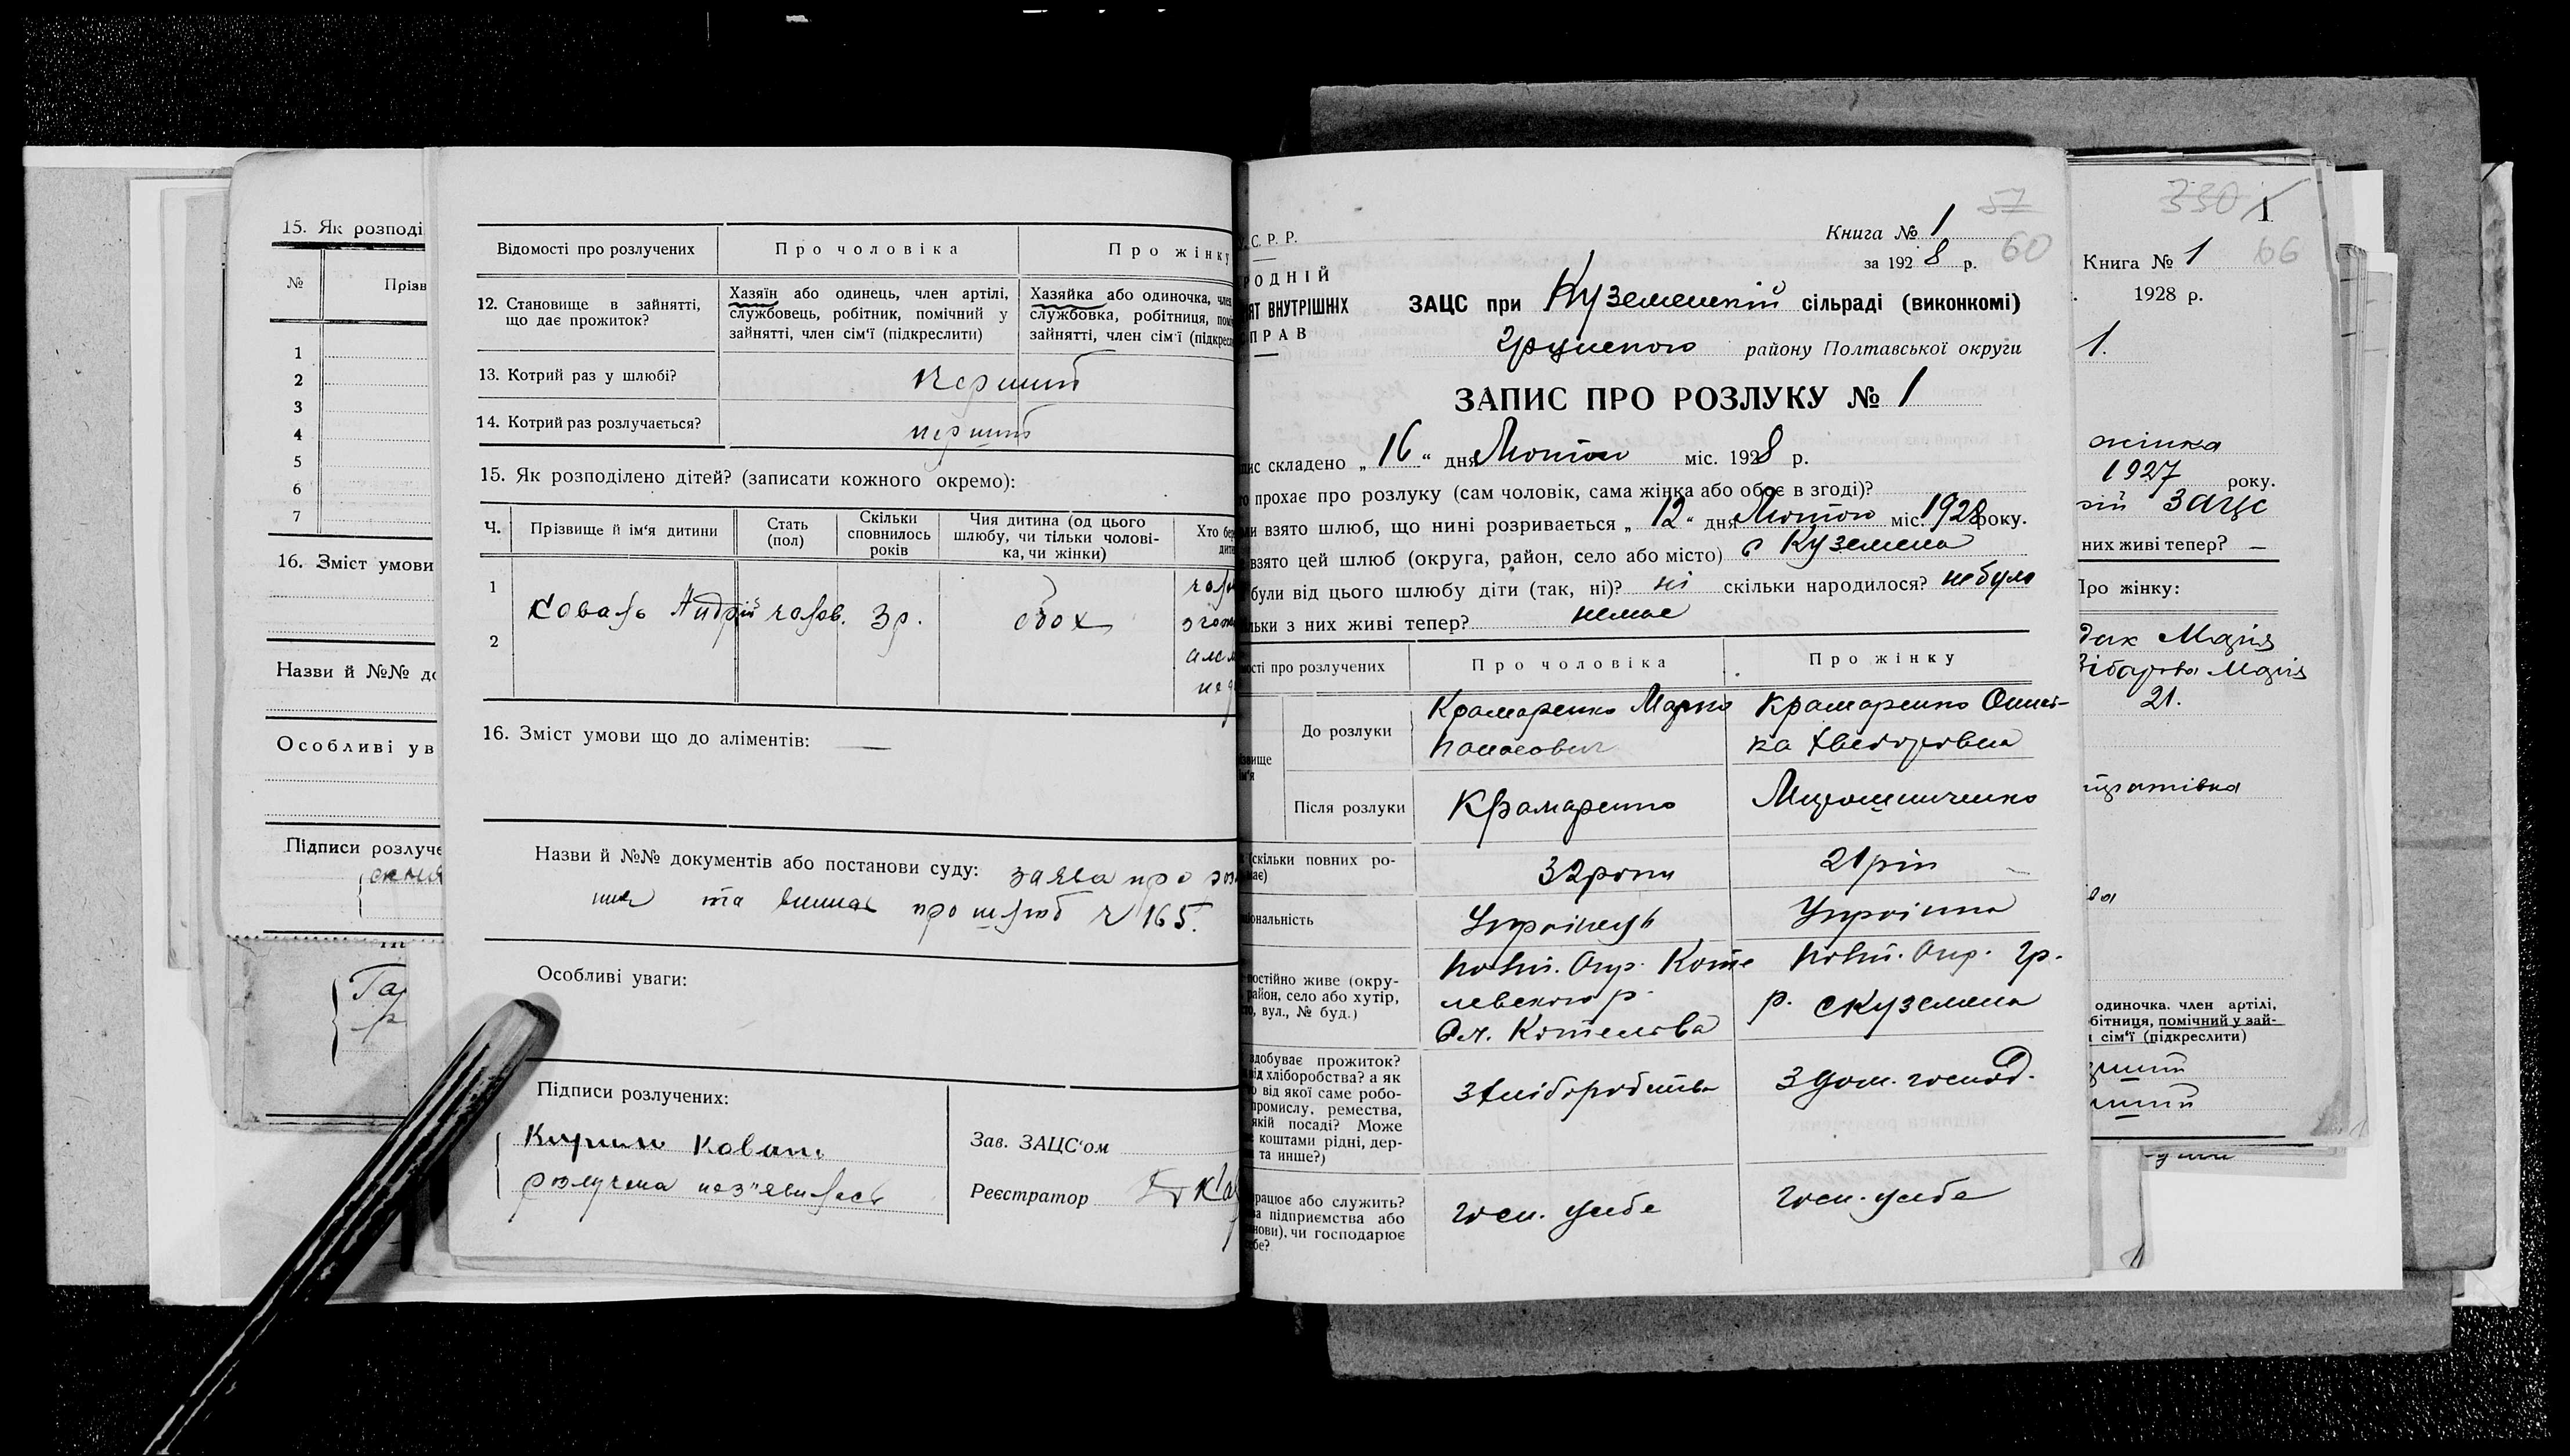 15. Як розподі
№ Прізв
1
2
3
4
5
6
7
16. Зміст умови
Назви й №№ до
Особливі ув
Підписи розлуче
Відомості про розлучених Про чоловіка Про жінку
12. Становище в зайнятті, що дає прожиток?
Хазяїн або одинець, член артілі,
службовець, робітник, помічний у
зайнятті, член сім'ї (підкреслити)
Хазяйка або одиночка, член
службовка, робітниця, помі
зайнятті, член сім'ї (підкресл
13. Котрий раз у шлюбі? Перший
14. Котрий раз розлучається? перший
15. Як розподілено дітей? (записати кожного окремо):
Ч. Прізвище й ім'я дитини Стать (пол) Скільки сповнилось років Чия дитина (од цього шлюбу, чи тільки чоловіка, чи жінки) Хто бер
1 Коваль Андрій чолов. 3 р. обох
2
16. Зміст умови що до аліментів: —
Назви й №№ документів або постанови суду: заява про роз
та про шлюб № 165.
Особливі уваги:
Підписи розлучених:
Кирило Коваль
розлучена нез"явилась
Зав. ЗАЦС'ом
Реєстратор
С. Р. Р.
РОДНІЙ
ЯТ ВНУТРІШНІХ
ПРАВ
57
60
Книга № 1
за 1928 р.
ЗАЦС при Куземенській сільраді (виконкомі)
Грунського району Полтавської округи
ЗАПИС ПРО РОЗЛУКУ № 1
ис складено „ 16 " дня Лютого міс. 1928 р.
о прохає про розлуку (сам чоловік, сама жінка або обоє в згоді)?
ли взято шлюб, що нині розривається „ 12 " дня Лютого міс. 1928 року.
взято цей шлюб (округа, район, село або місто) с Куземена
були від цього шлюбу діти (так, ні)? ні скільки народилося? небуло
льки з них живі тепер? немає
ості про розлучених Про чоловіка Про жінку
До розлуки
Крамаренко Марко
Панасович
Крамаренко Онись-
ка Хведоровна
Після розлуки Крамаренко Мирошниченко
(скільки повних ро-
ає) 32 роки 21 рік
ціональність Українець Українка
постійно живе (окру-
район, село або хутір,
то, вул., № буд.)
Полт. Окр. Коте
левського р.
Сл. Котельва
Полт. Окр. Гр.
р. с Куземена
здобуває прожиток?
від хліборобства? а як
о від якої саме робо-
промислу, ремества,
якій посаді? Може
коштами рідні, дер-
та инше?)
З хліборобства
З дом. господ.
рацює або служить?
ва підприємства або
нови), чи господарює
ебе?
госп. у себе
госп. у себе
330
1
66
Книга № 1
1928 р.
1.
жінка
1927 року.
ЗАЦС
них живі тепер? —
Про жінку:
Марія
Марія
21.
одиночка. член артілі,
бітниця, помічний у зай-
сім'ї (підкреслити)